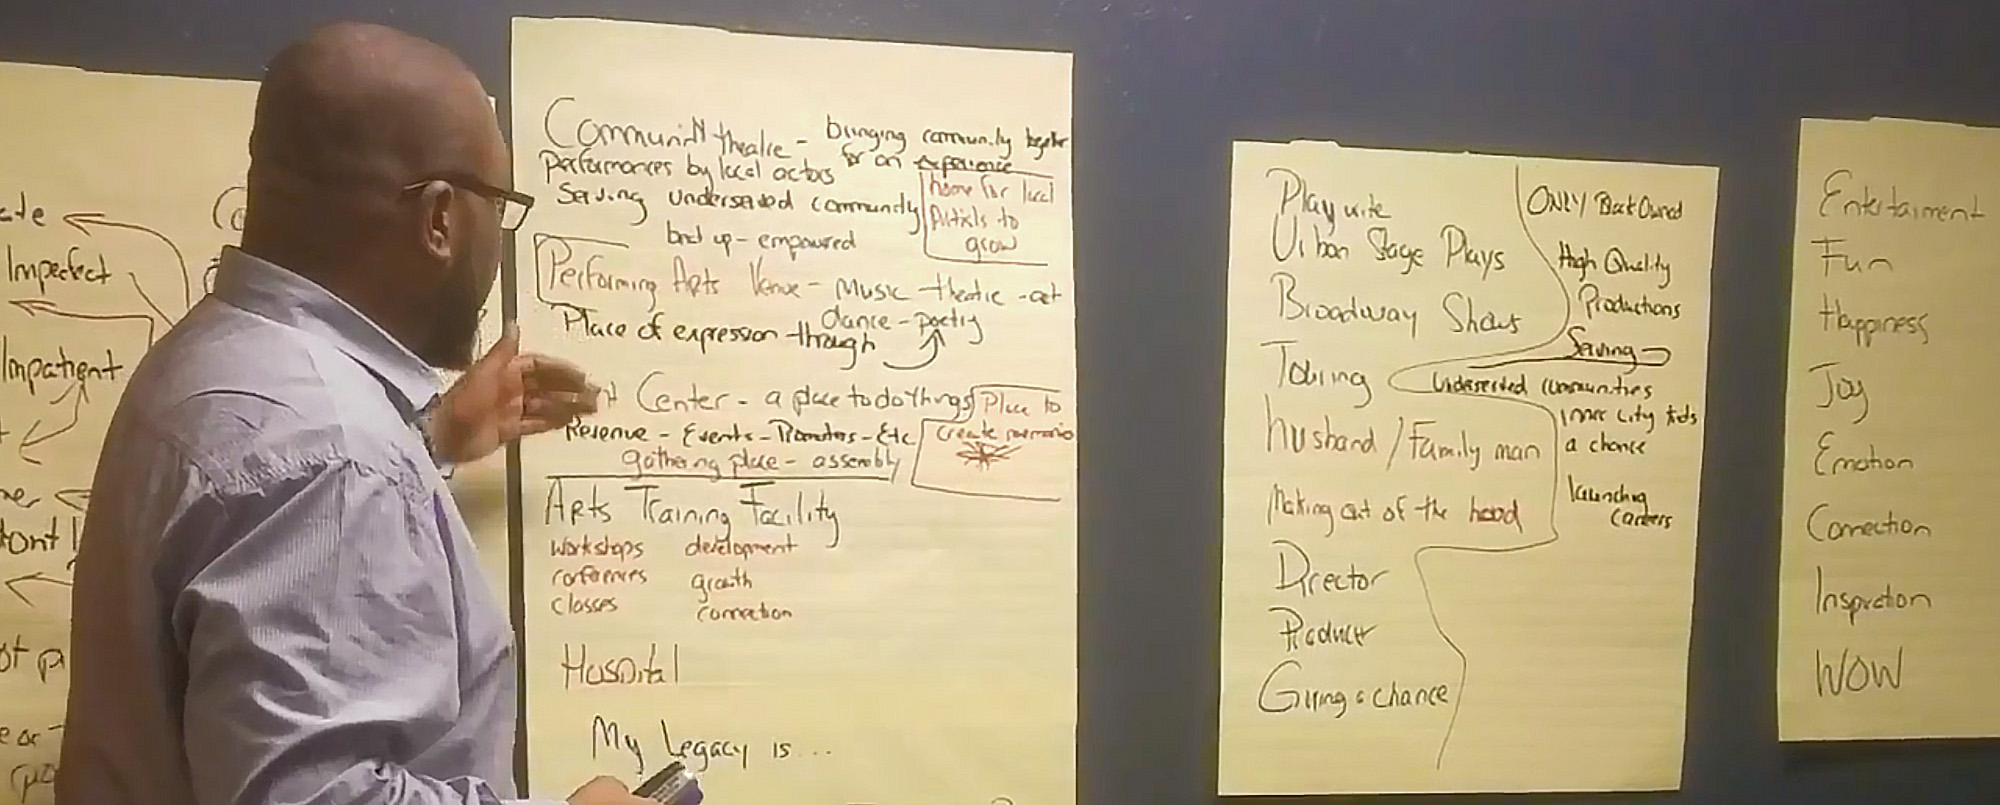 Imperfect
Impatient
Community theatre - bringing community together
performances by local actors for an experience
Serving underserved community
home for local
Artists to
grow
up - empowered
Performing Arts Venue - Music - theatre - art
dance - poetry
Place of expression through
Center - a place to do things
Place to
create memories
Revenue - Events - Promoters - Etc
gathering place - assembly
Arts Training Facility
workshops development
conferences growth
classes connection
Hospital
My Legacy is...
Playwrite
Urban Stage Plays
Broadway Shows
Touring
husband / Family man
Making out of the hood
Director
Producer
Giving a chance
ONLY Black Owned
High Quality
Productions
Serving
Underserved communities
inner city kids
a chance
launching
careers
Entertaiment
Fun
Happiness
Joy
Emotion
Connection
Inspiration
WOW